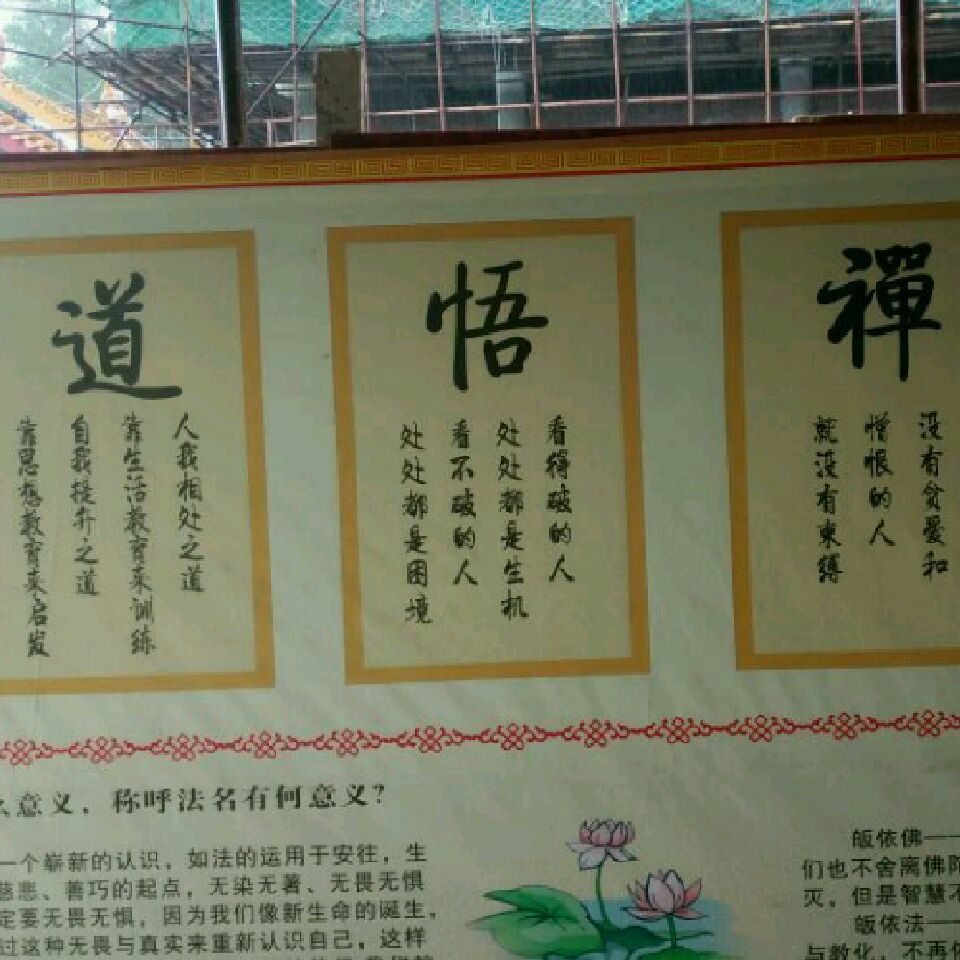 禪
没有贪爱和
憎恨的人
就没有束缚
悟
看得破的人
处处都是生机
看不破的人
处处都是困境
道
人我相处之道
靠生活教育来训练
自我提升之道
靠思想教育来启发
么意义，称呼法名有何意义？
一个崭新的认识，如法的运用于安往，生
慈悲、善巧的起点，无染无著、无畏无惧
定要无畏无惧，因为我们像新生命的诞生，
过这种无畏与真实来重新认识自己，这样
皈依佛——
们也不舍离佛陀
灭，但是智慧不
皈依法——
与教化，不再依